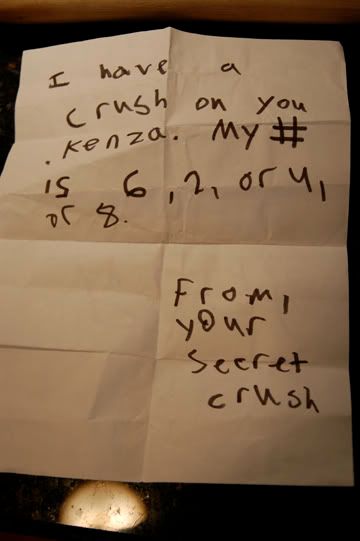 I have a
crush on you
. Kenza. My #
is 6, 2, or 4,
or 8.
From,
your
secret
crush